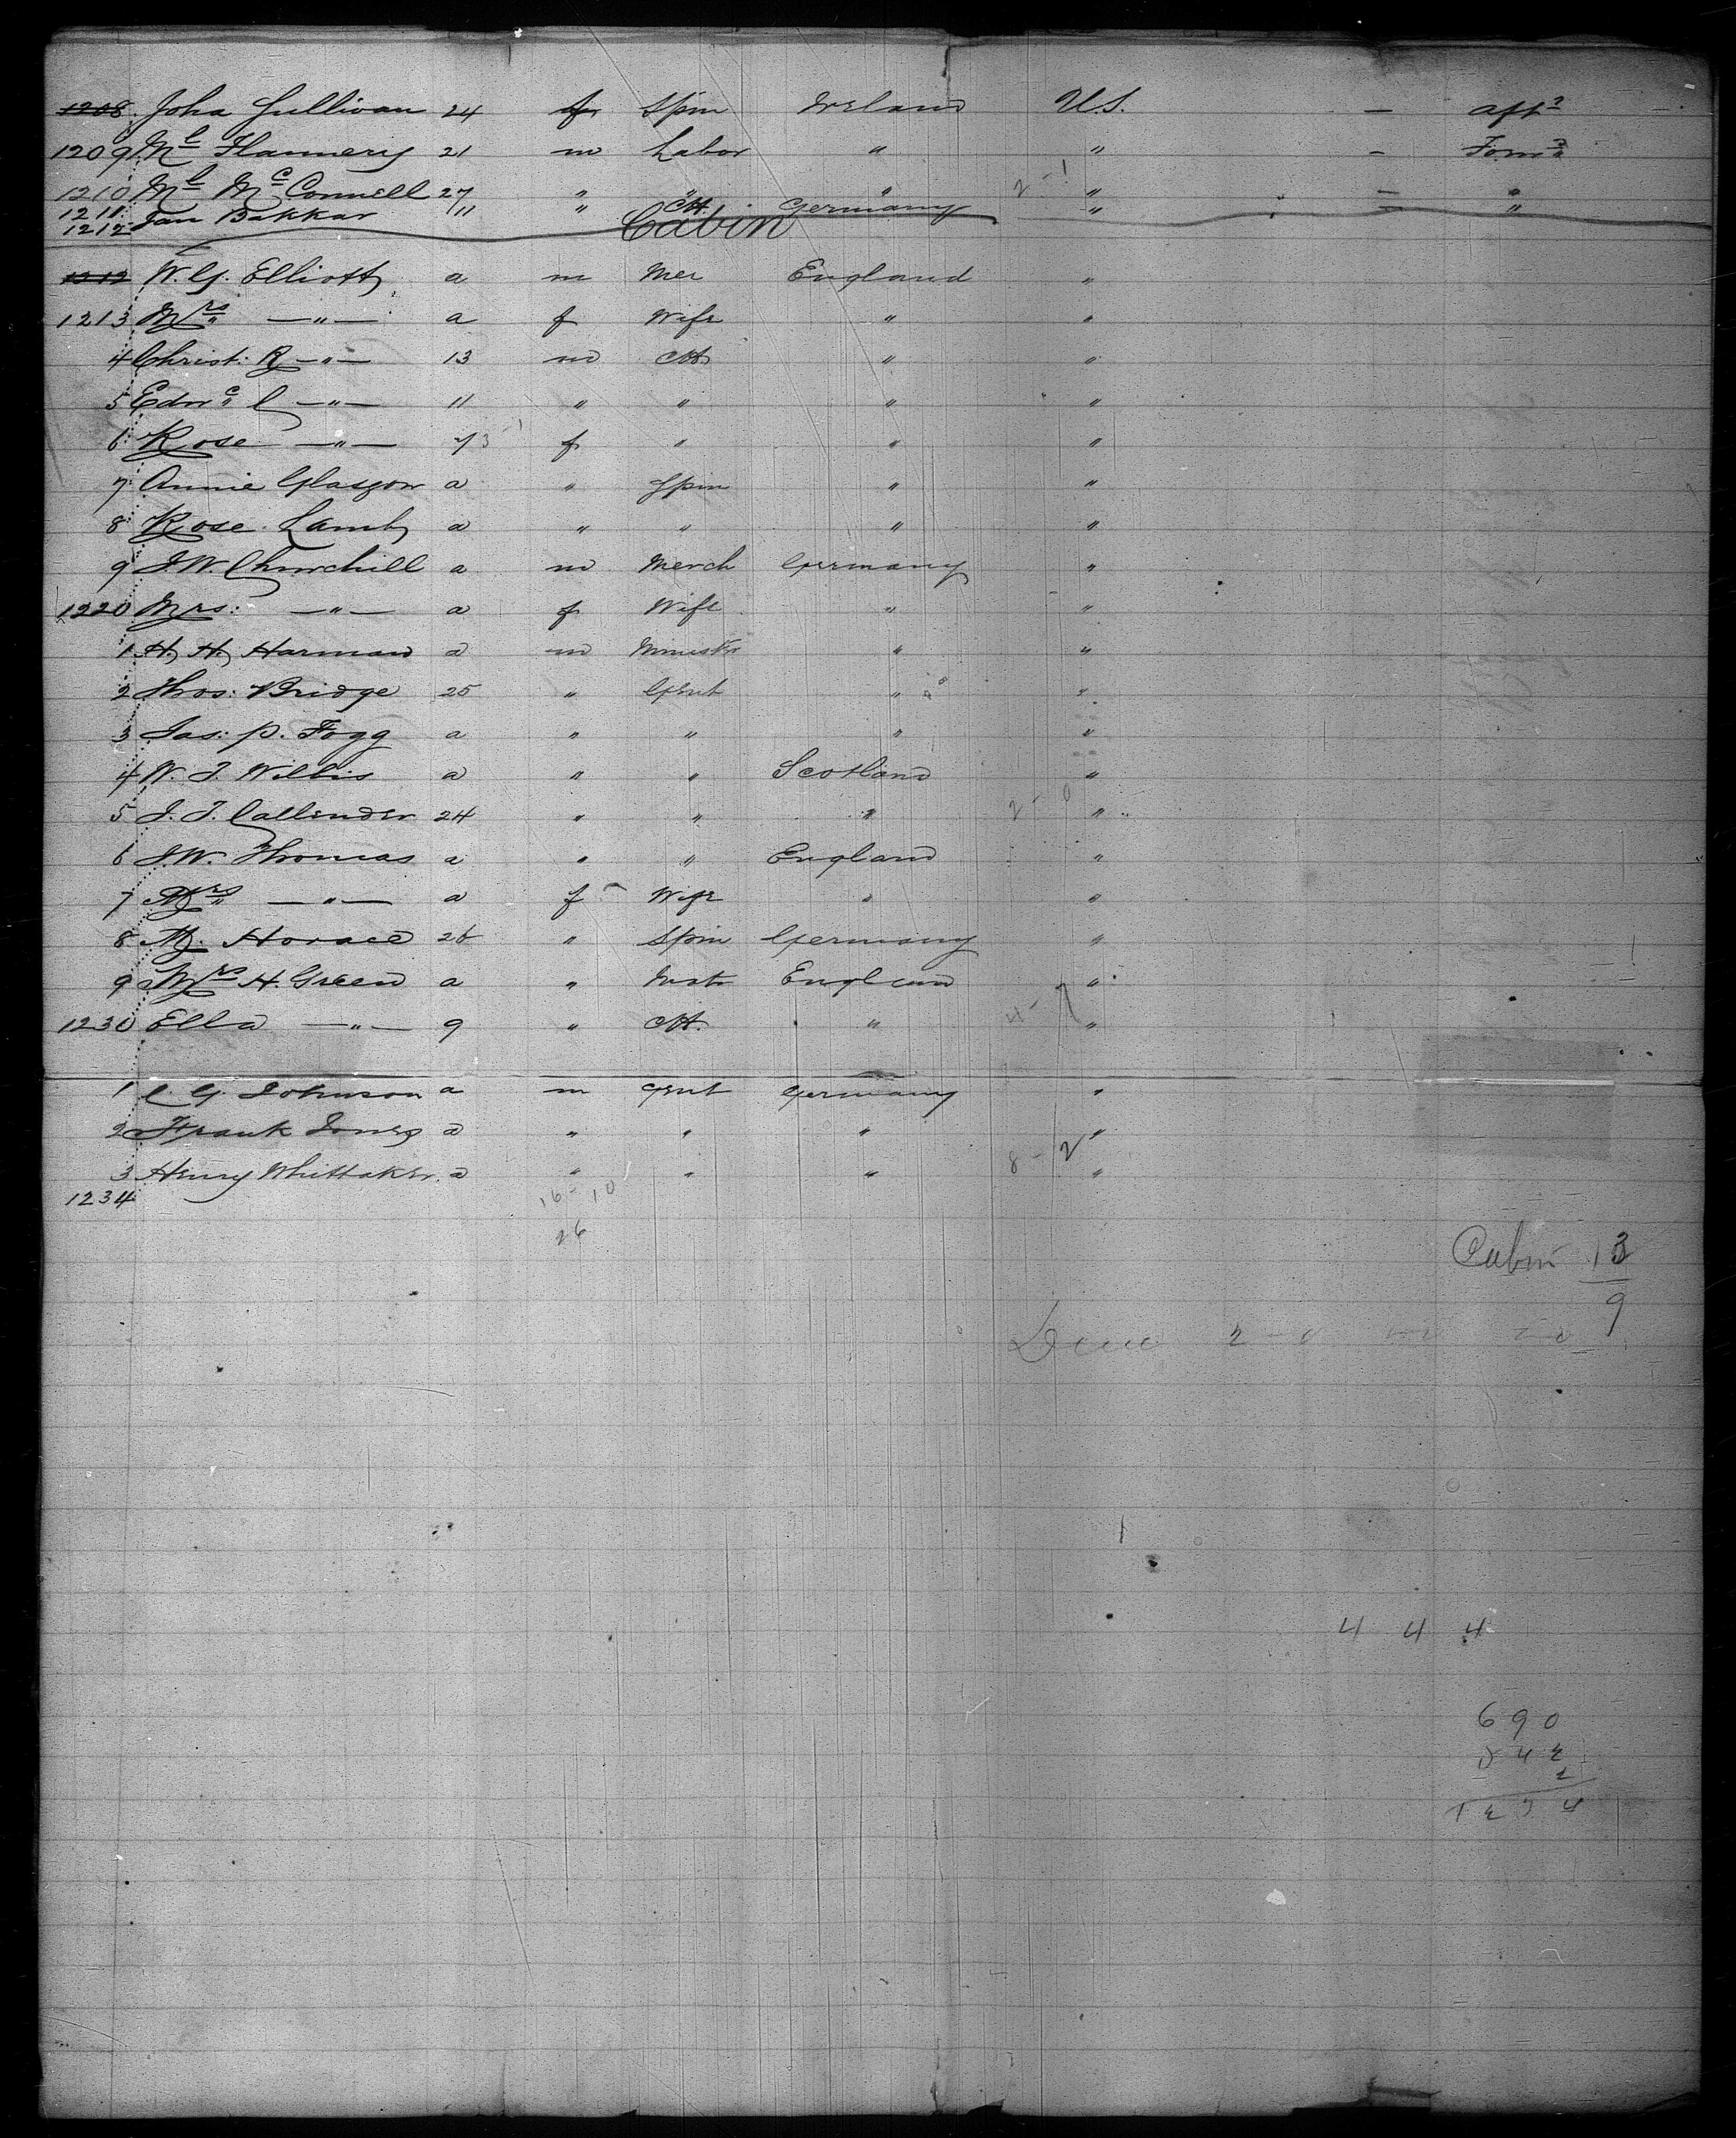 1208 Joha Sullivan 24 f Spin Ireland U.S. — Aft
1209 Ml Flannery 21 m Labor " " - Forwd
1210 Ml McConnell 27 " " " 2-1 " — "
1211 Jan Bakkar 11 " Ch. Germany " — "
1212 Cabin
1212 W. G. Elliott a m Mer England "
1213 Mrs —"— a f Wife " "
4 Christ: R —"— 13 m Ch " "
5 Edwd C —"— 11 " " " "
6 Rose —"— 73 f " " "
7 Annie Glasgow a " Spin " "
8 Rose Lamb a " " " "
9 J. W. Churchill a m Merch Germany "
1220 Mrs: —"— a f Wife " "
1 H. H. Harman a m Minister " "
2 Thos: Bridge 25 " Gent " "
3 Jas: P. Fogg a " " " "
4 W. J. Willis a " " Scotland "
5 J. J. Callender 24 " " " 2-0 "
6 J. W. Thomas a " " England "
7 Mrs —"— a f Wife " "
8 M. Horace 26 " Spin Germany "
9 Mrs H. Green a " England "
1230 Ella —"— 9 " Ch. " 4-7 "
1 C. G. Johnson a m Gent Germany "
2 Frank Jones a " " " "
3 Henry Whittaker a " " " 8-2 "
1234
16-10
26
Cabin 13
9
4 4 4
690
542
2
1234